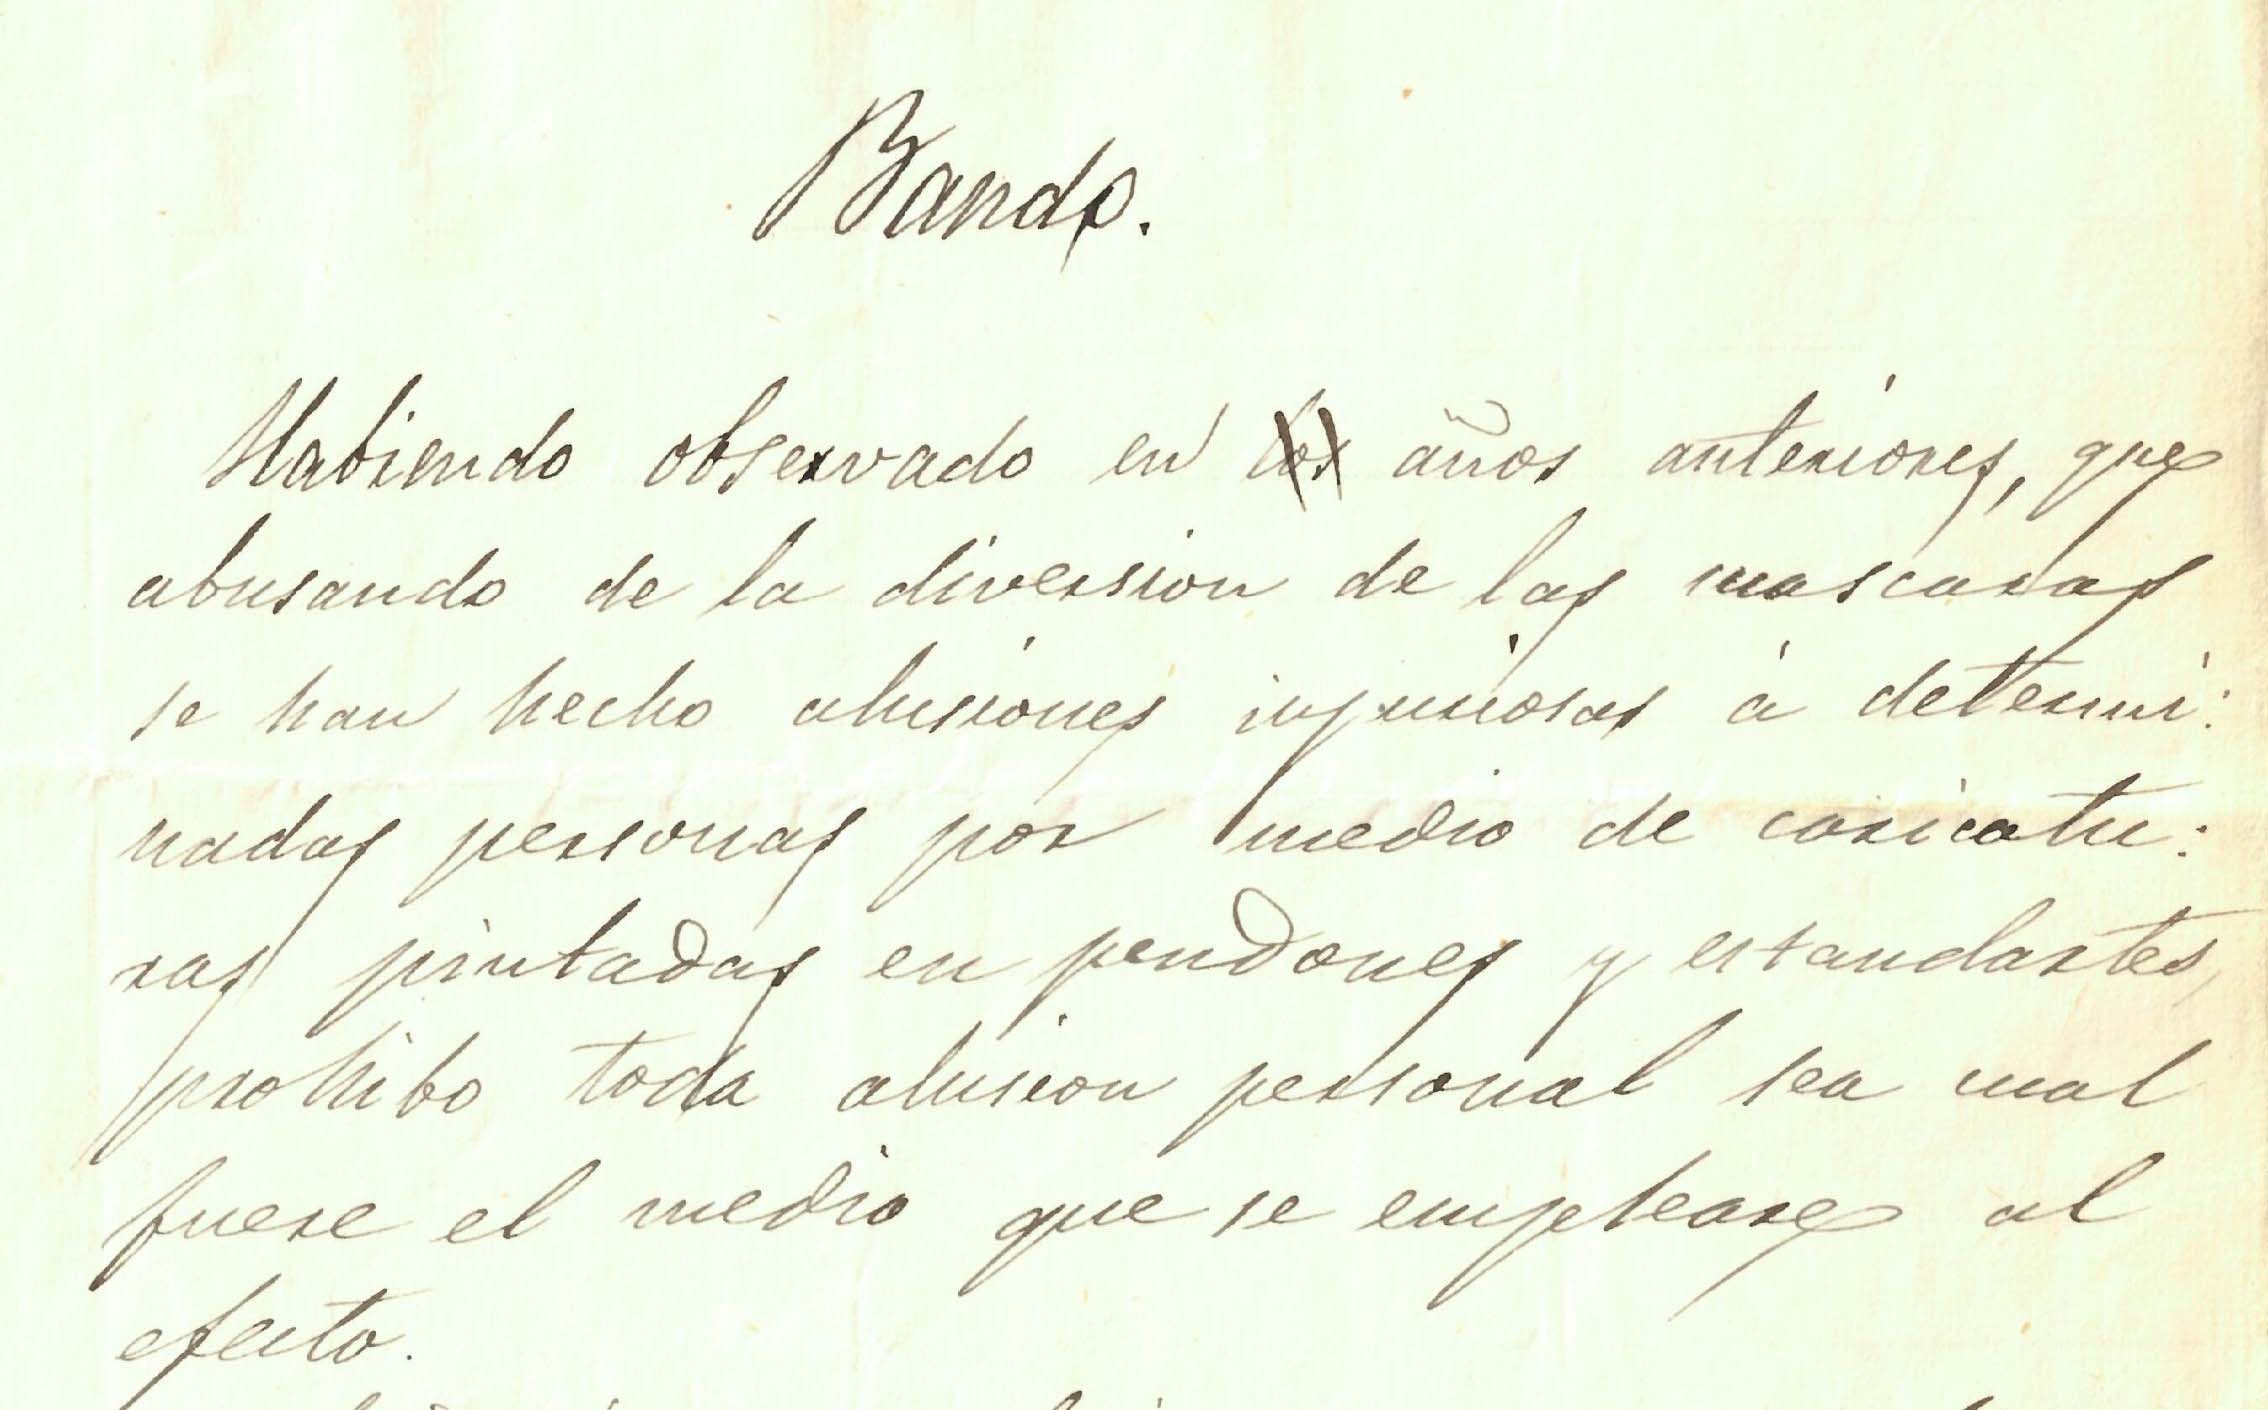 Bando.
Habiendo observado en los años anteriores, que
abusando de la diversion de las mascaras
se han hecho alusiones injuriosas á determi:
nadas personas por medio de caricatu:
ras pintadas en pendones y estandartes,
prohibo toda alusion personal sea cual
fuere el medio que se emplease al
efecto.